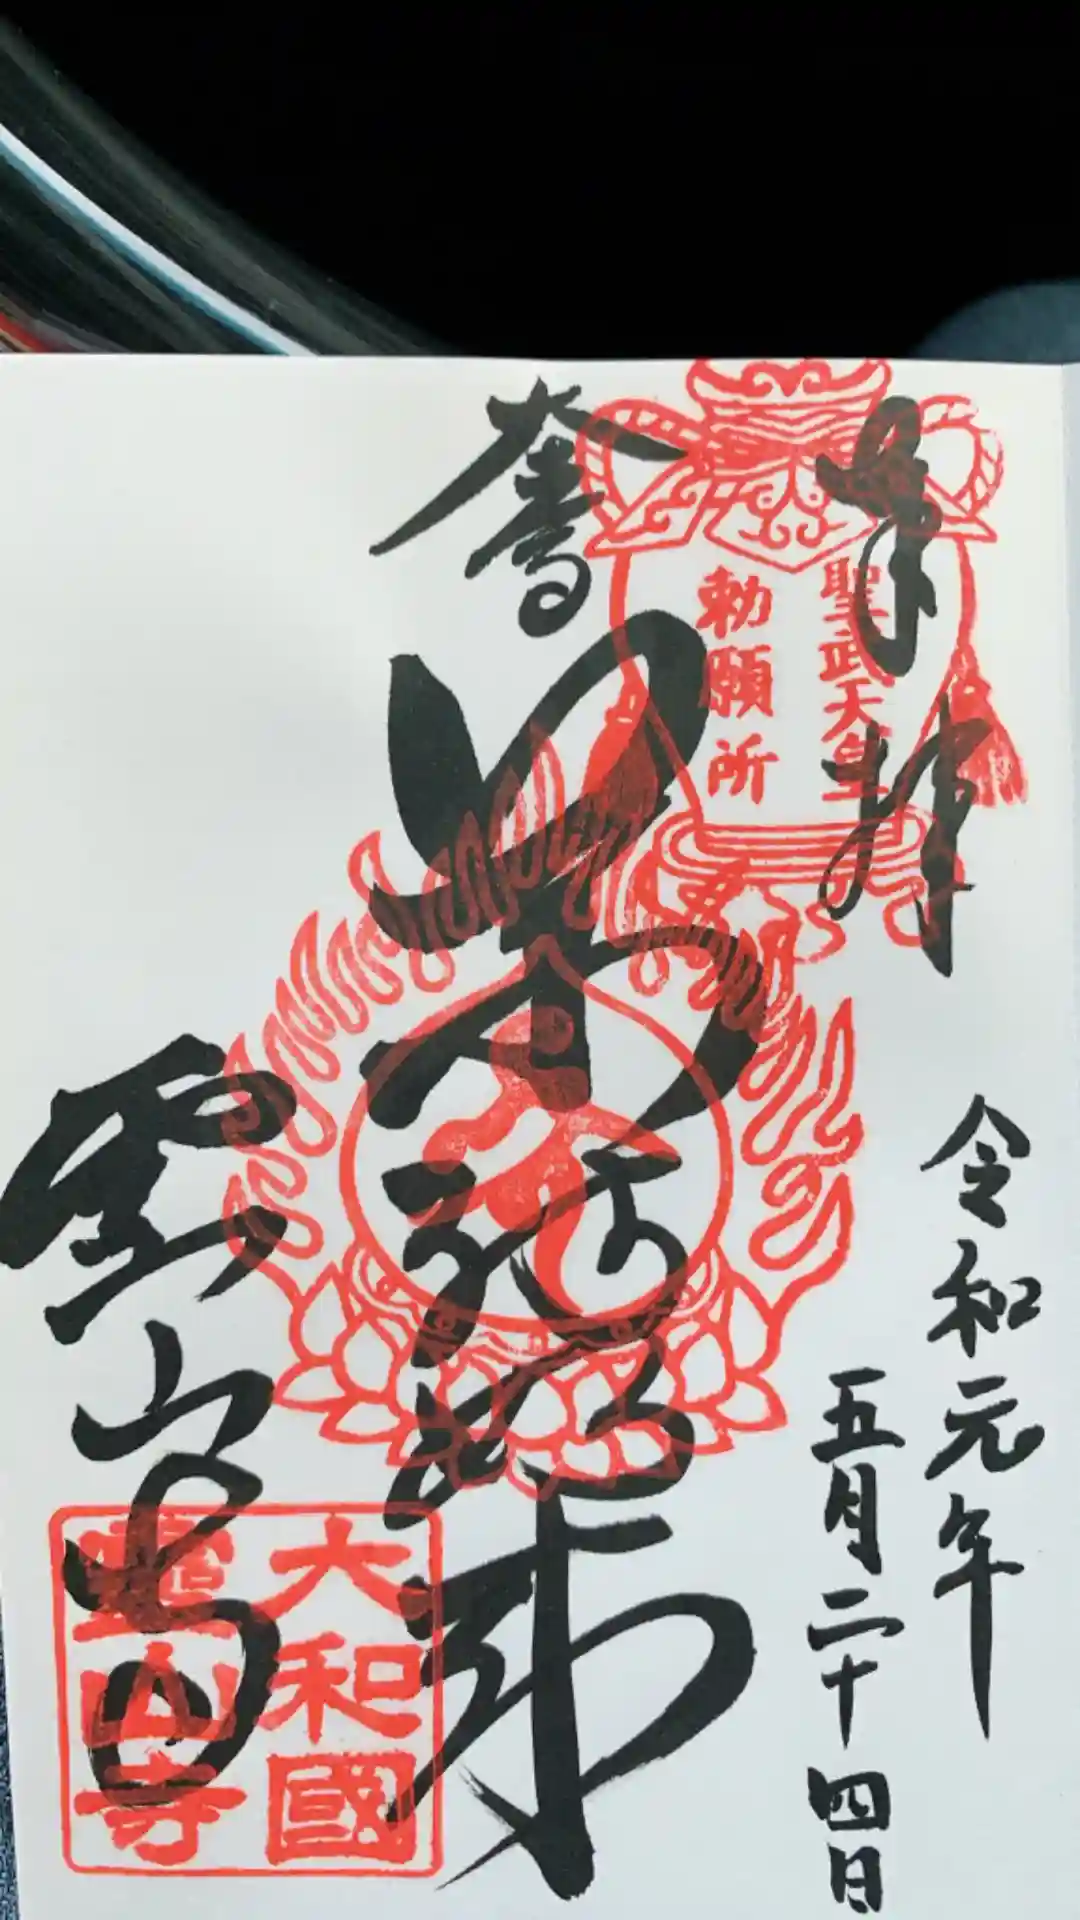 奉拝
聖武天皇
勅願所
令和元年
五月二十四日
霊山寺
大和國
靈山寺